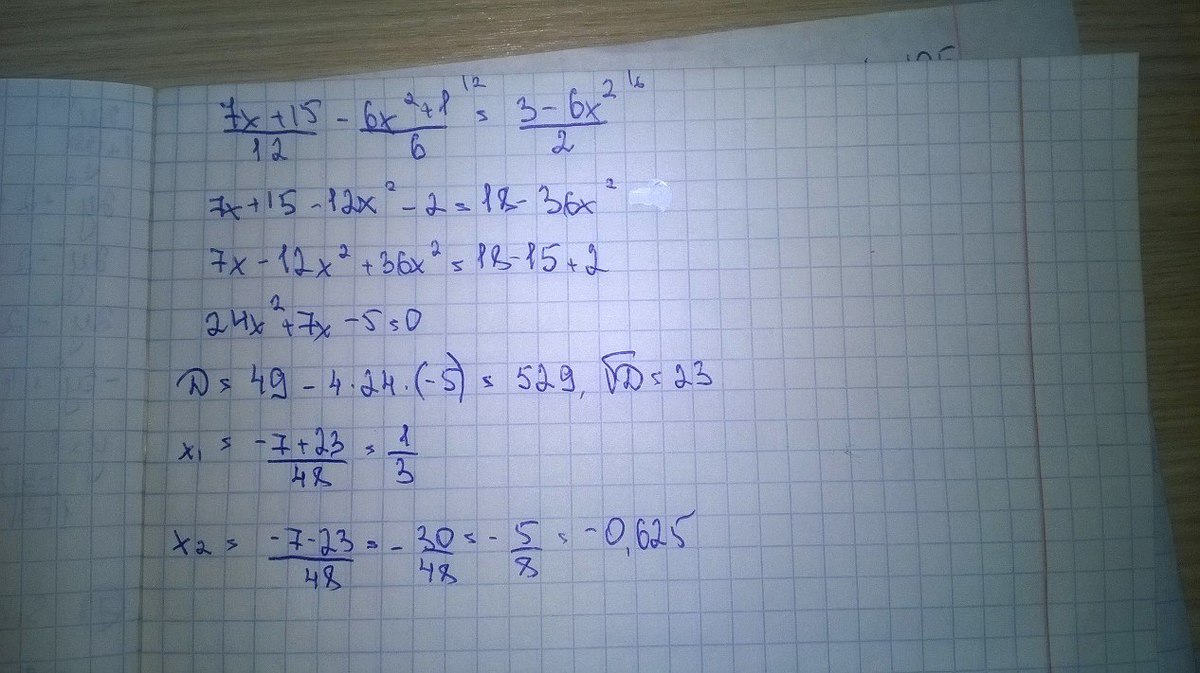 (7x+15)/12 - (6x²+1)/6 ^(12) = (3-6x²)/2 ^(16)
7x+15-12x²-2=18-36x²
7x-12x²+36x²=18-15+2
24x²+7x-5=0
D=49-4·24·(-5)=529, √D=23
x₁=(-7+23)/48=1/3
x₂=(-7-23)/48=-30/48=-5/8=-0,625